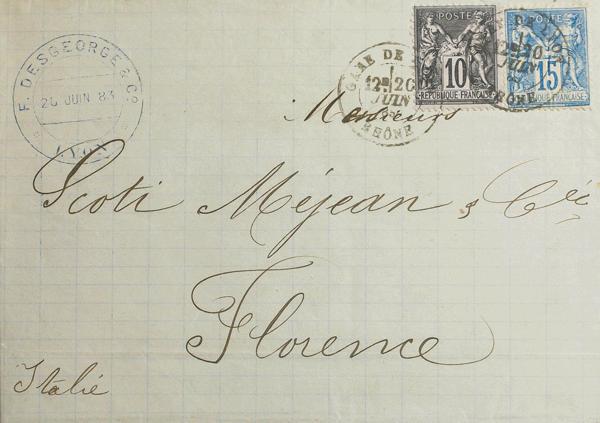 F. DESGEORGE & Co.
20 JUIN 83
LYON
GARE DE
12E 20
JUIN
RHÔNE
POSTE
10
RÉPUBLIQUE FRANÇAISE
GARE DE LYON
12E 20
JUIN
RHÔNE
POSTE
15
RÉPUBLIQUE FRANÇAISE
Messieurs
Scoti Méjean & Cie
Florence
Italie